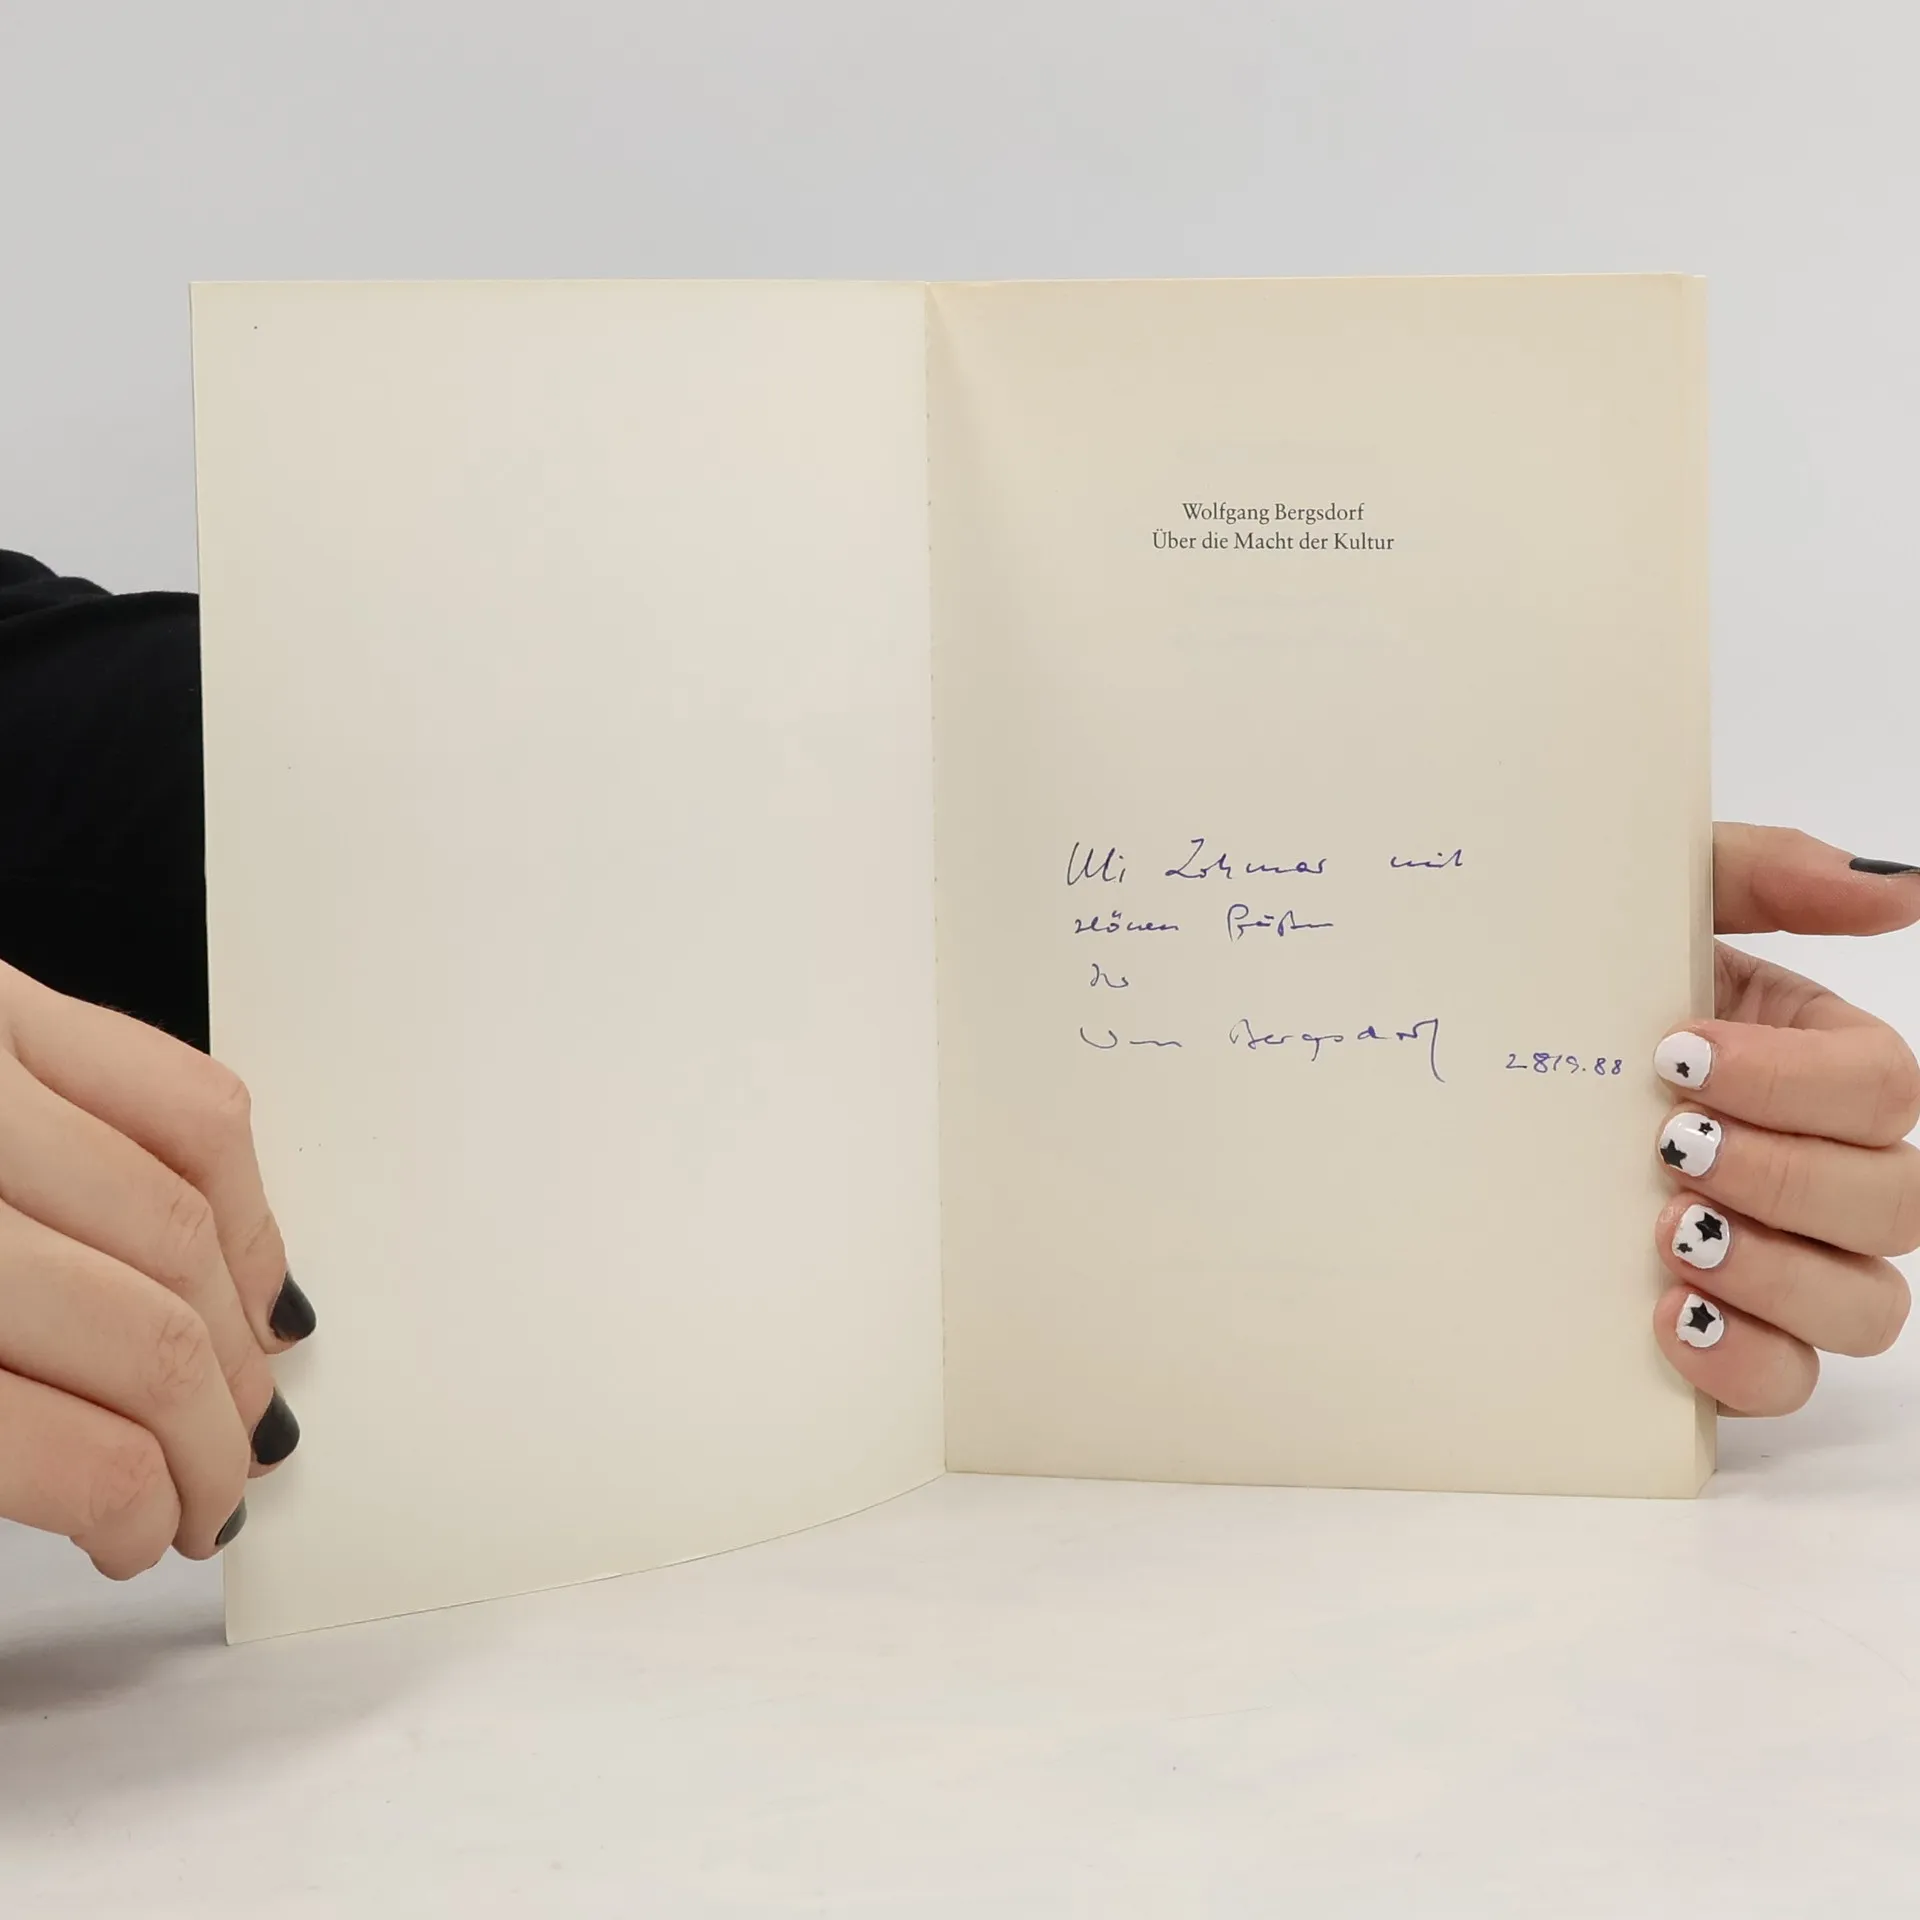 Wolfgang Bergsdorf
Über die Macht der Kultur
Uli Lohmar mit
schönen Grüßen
Ihr
Bergsdorf 28/9.88